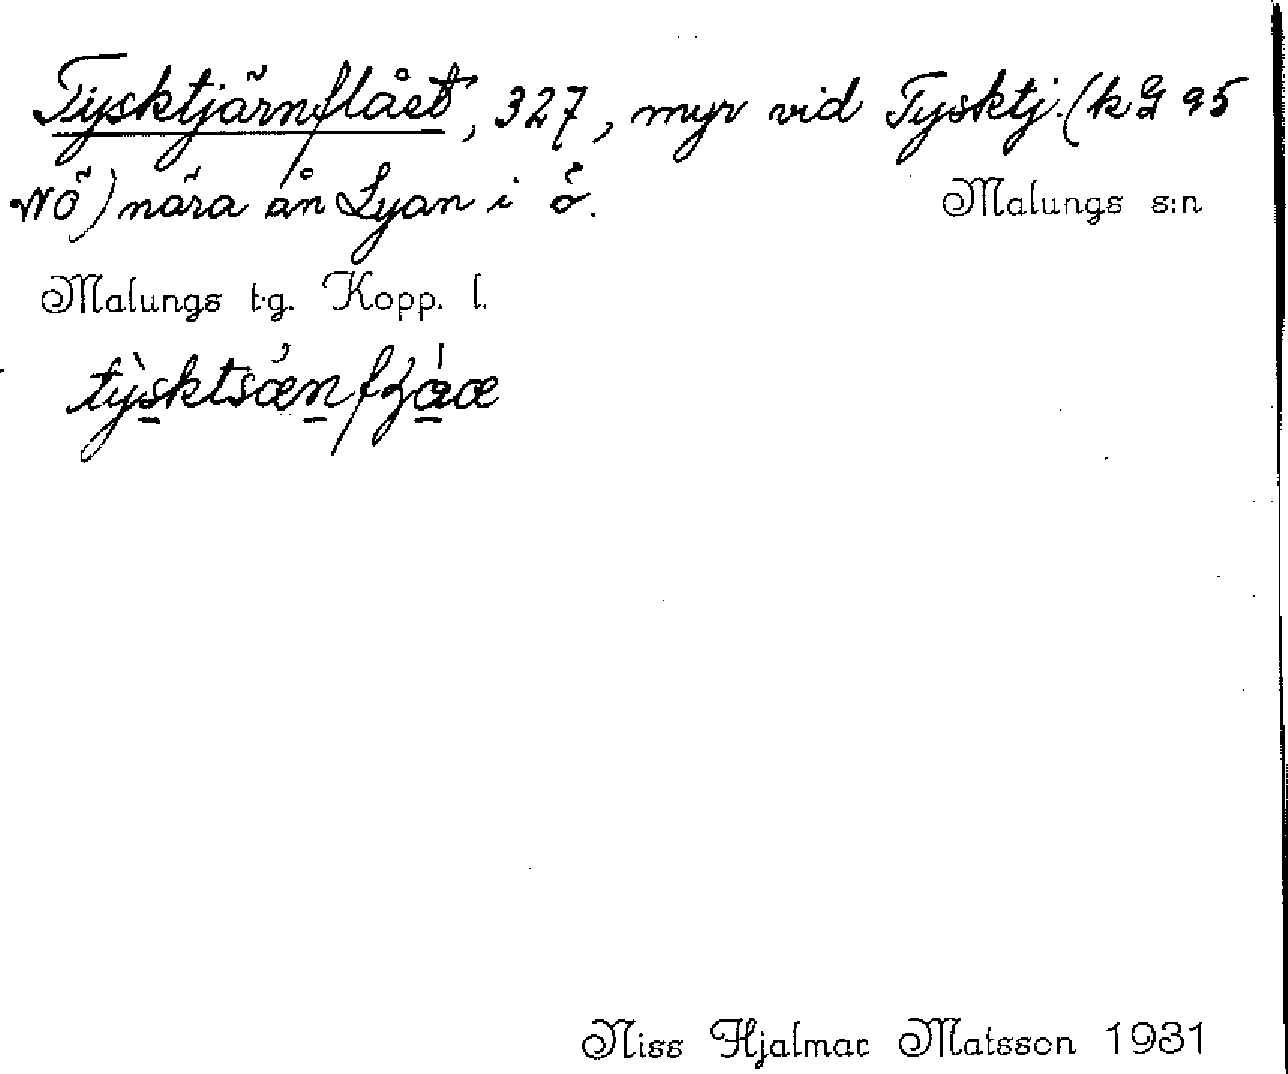 Tysktjärnflået, 327, myr vid Tysktj. (kG 95
NÖ) nära ån Lyan i ö. Malungs s:n
Malungs t.g. Kopp. l.
Niss Hjalmar Matsson 1931